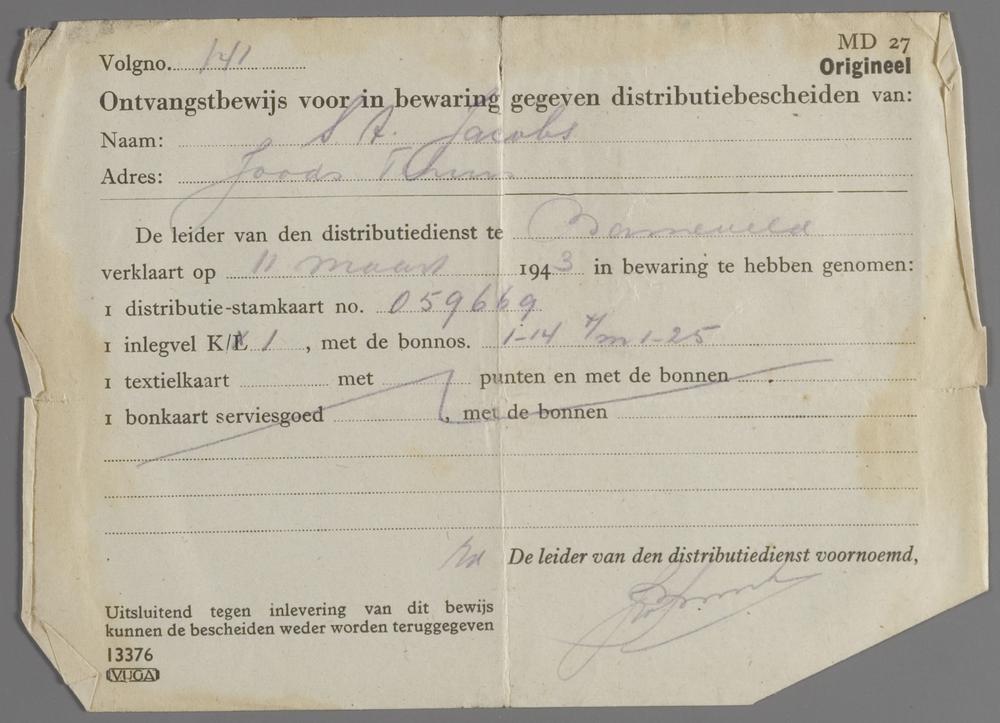 Volgno. 141
MD 27
Origineel
Ontvangstbewijs voor in bewaring gegeven distributiebescheiden van:
Naam: S A. Jacobs
Adres: Joods Tehuis
De leider van den distributiedienst te Barneveld
verklaart op 11 maart 1943 in bewaring te hebben genomen:
1 distributie-stamkaart no. 059669
1 inlegvel K/L 1, met de bonnos. 1-14 t/m 1-25
1 textielkaart met punten en met de bonnen
1 bonkaart serviesgoed , met de bonnen
De leider van den distributiedienst voornoemd,
Uitsluitend tegen inlevering van dit bewijs
kunnen de bescheiden weder worden teruggegeven
13376
VUGA